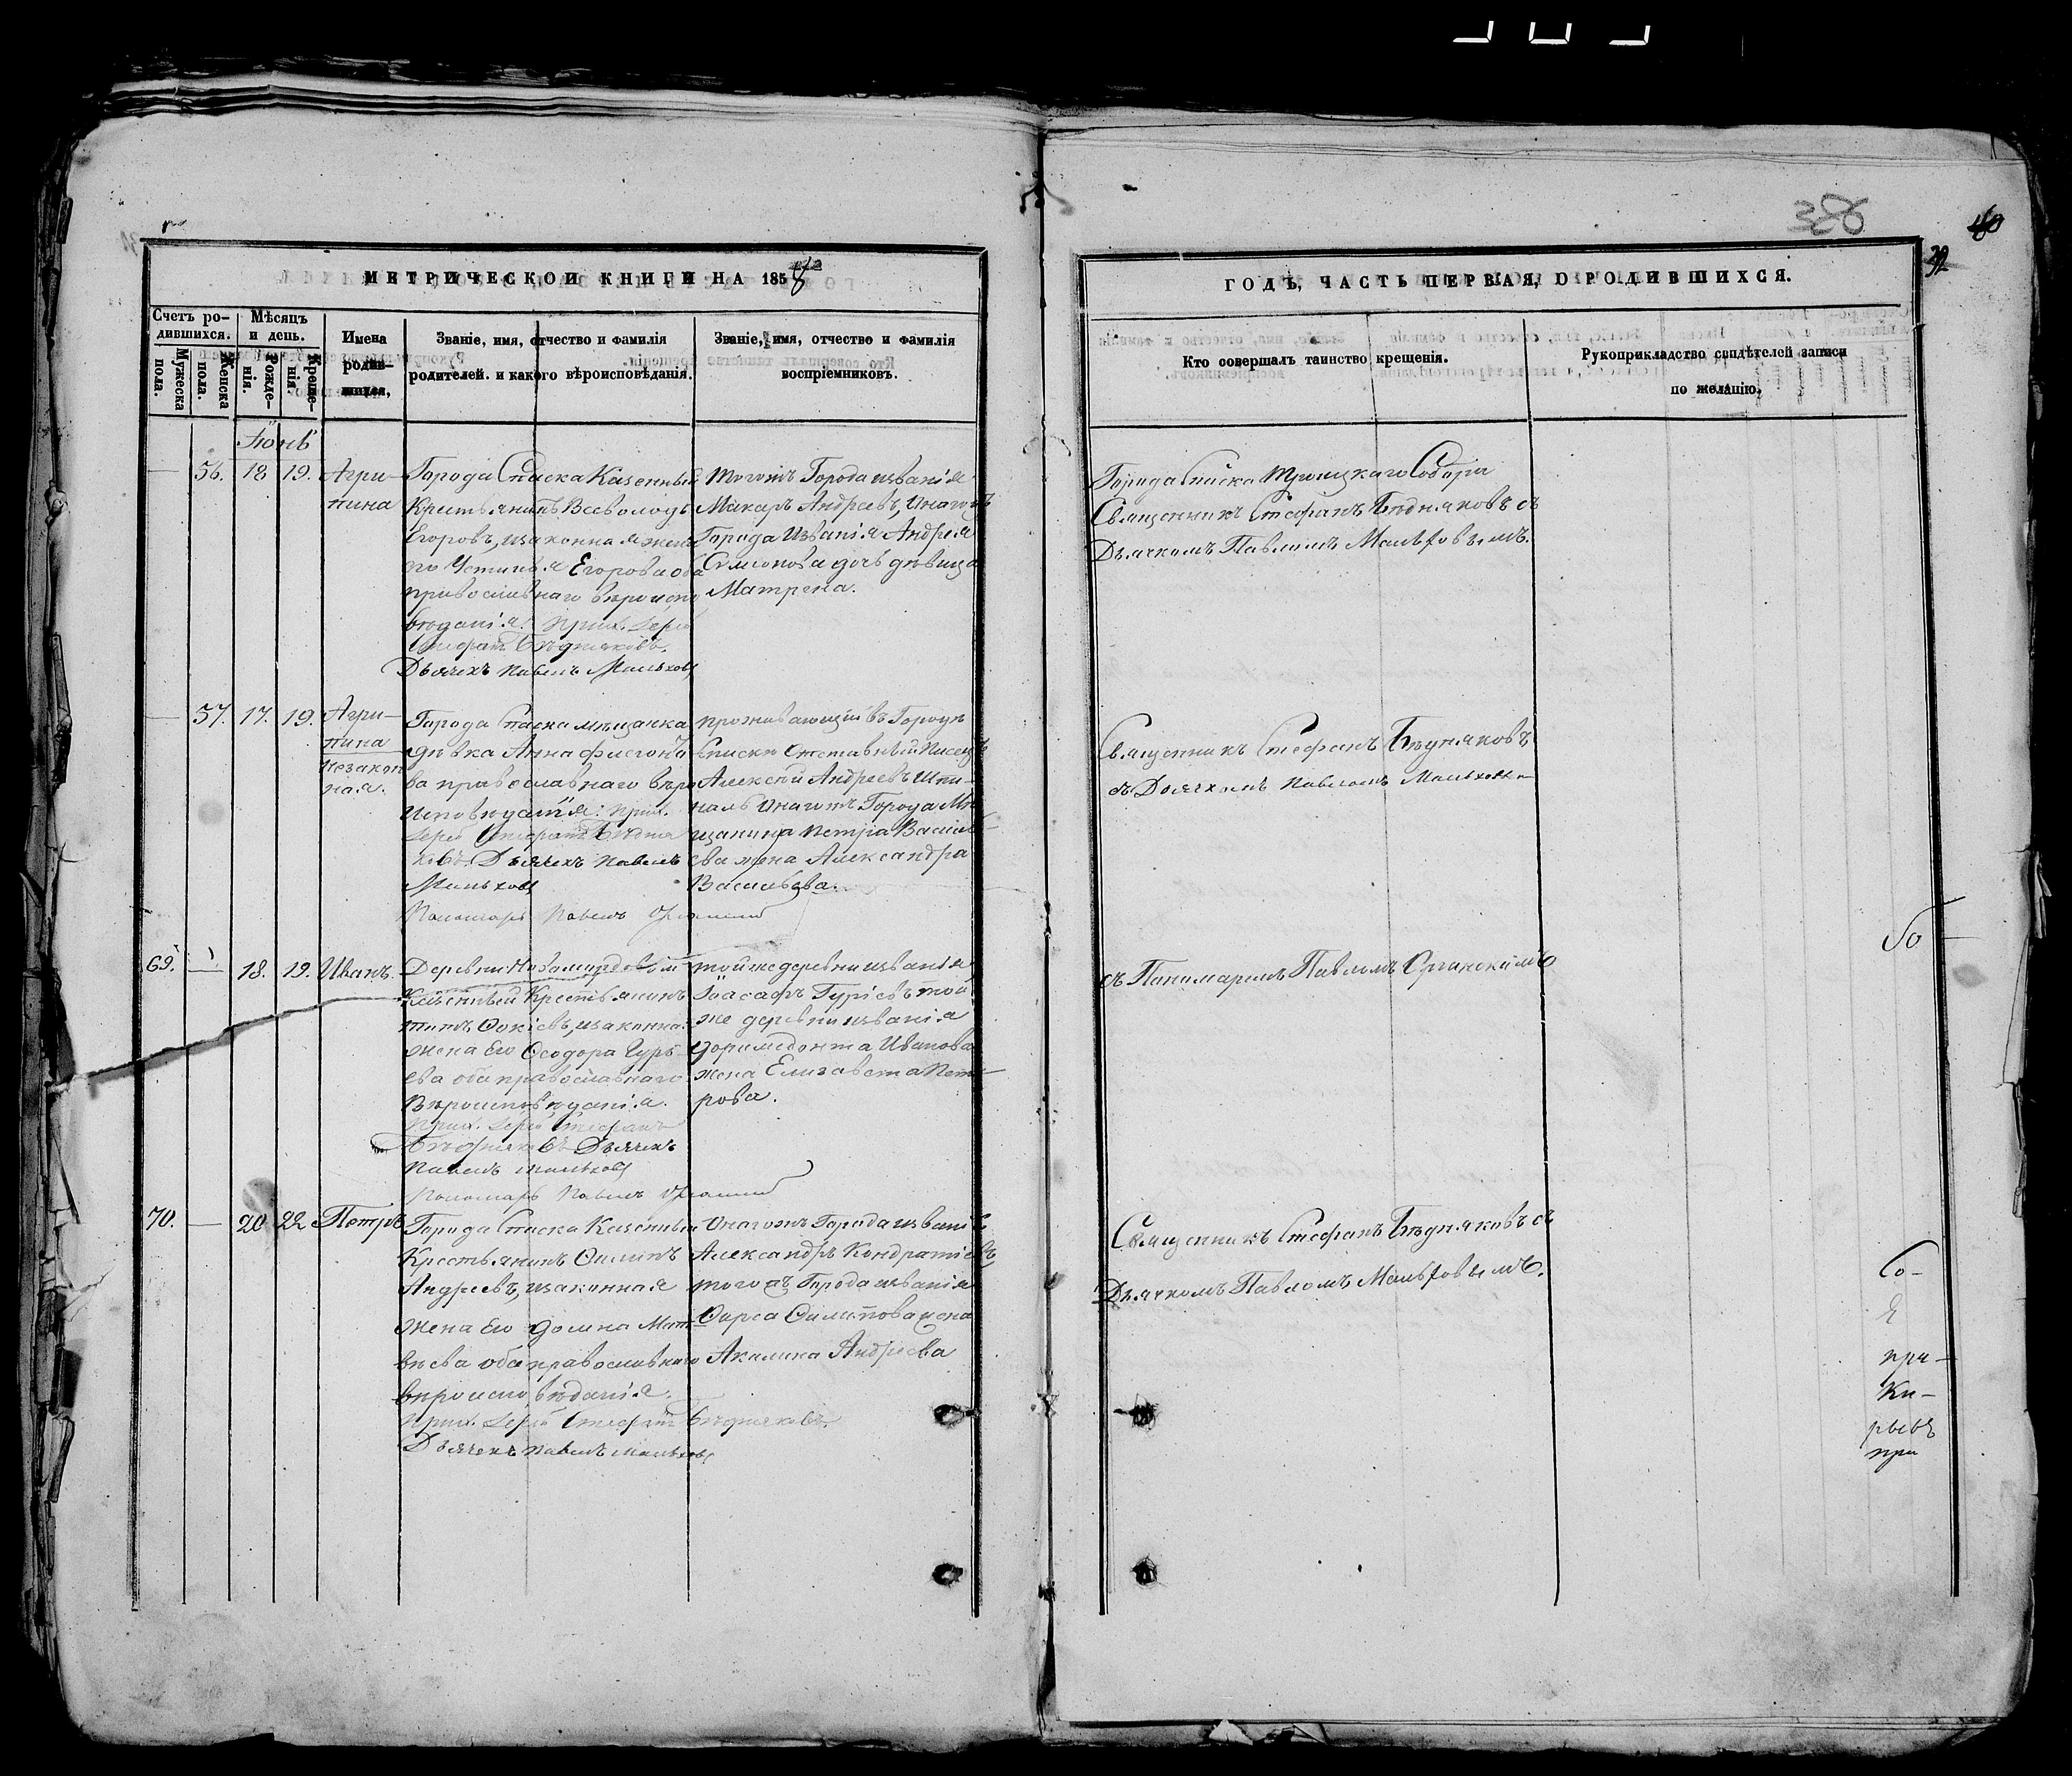 386
40
32
МЕТРИЧЕСКОЙ КНИГИ НА 1858
Счетъ ро-
дившихся.
Мужеска
пола.
Женска
пола.
Мѣсяцъ
и день.
Рожде-
нія.
Креще-
нія.
Имена
родив-
шихся,
Званіе, имя, отчество и фамилія
родителей. и какого вѣроисповѣданія.
Званіе, имя, отчество и фамилія
воспріемниковъ.
ГОДЪ, ЧАСТЬ ПЕРВАЯ, О РОДИВШИХСЯ.
Кто совершалъ таинство крещенія.
Рукоприкладство свидѣтелей записи
по желанію.
Іюнь
56. 18 19. Агри-
пина
Города Спаска Казенный
Крестьянинъ Всеволодъ
Егоровъ, изаконная жена
его Устинья Егорова оба
православнаго вѣроиспо
вѣданія. Прих. Іерей
Стефанъ Бѣдняковъ.
Дьячекъ Павелъ Мальховъ
тогожъ Города изванія
Макаръ Андреевъ, Инагожъ
Города Изванія Андрея
Симеонова дочь дѣвица
Матрена.
Города Спаска Троицкаго Собора
Священникъ Стефанъ Бѣдняковъ съ
Дьячкомъ Павломъ Мальховымъ.
57. 17. 19. Агри-
пина
незакон
ная.
Города Спаска мѣщанка
дѣвка Анна Флегонто
ва православнаго вѣро
исповѣданія: Прих.
Іерей Стефанъ Бѣдня
ковъ. Дьячекъ Павелъ
Мальховъ
Пономарь Павелъ
проживающій въ Городѣ
Спаскѣ Отставный Писецъ
Алексѣй Андреевъ
Инагожъ Города Мѣ
щанина Петра Василь-
ева жена Александра
Васильева.
Священникъ Стефанъ Бѣдняковъ
съ Дьячкомъ Павломъ Мальховым
69. — 18. 19. Иванъ.
Деревни
Казенный Крестьянинъ
Фокіевъ, изаконная
жена Его Ѳеодора Гурь-
ева оба православнаго
Вѣроисповѣданія.
Прих. Іерей Стефанъ
Бѣдняковъ Дьячекъ
Павелъ Мальховъ
Пономарь Павелъ
тойже деревни изванія
Іоасафъ Гуріевъ той
же деревни изванія
Доримедонта Иванова
жена Елизавета Пет-
рова.
съ Панамаремъ Павломъ
70. — 20 22 Петръ
Города Спаска Казенный
Крестьянинъ Филипъ
Андреевъ, изаконная
жена Его Домна Мат-
вѣева оба православнаго
вѣроисповѣданія.
Прих. Іерей Стефанъ Бѣдняковъ.
Дьячекъ Павелъ Мальховъ
Инагожъ Города изванія
Александръ Кондратіевъ
тогожъ Города изванія
Фирса Филипова жена
Акилина Андреева
Священникъ Стефанъ Бѣдняковъ съ
Дьячкомъ Павломъ Мальховымъ.
Со-
при